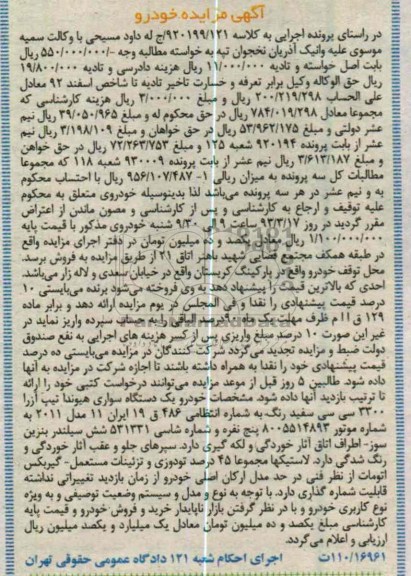 آگهی مزایده خودرو
در راستای پرونده اجرایی به کلاسه ۹۲۰۱۹۹/۱۲۱ج له داود مسیحی با وکالت سمیه
موسوی علیه وانیک آذریان نخجوان تپه به خواسته مطالبه وجه -/۵۵۰/۰۰۰/۰۰۰ ریال
بابت اصل خواسته و تادیه ۱۱/۰۰۰/۰۰۰ ریال هزینه دادرسی و تادیه ۱۹/۸۰۰/۰۰۰
ریال حق الوکاله وکیل برابر تعرفه و خسارت تاخیر تادیه تا شاخص اسفند ۹۲ معادل
علی الحساب ۲۰۰/۲۱۹/۲۹۸ ریال و مبلغ ۳/۰۰۰/۰۰۰ ریال هزینه کارشناسی که
مجموعا معادل ۷۸۴/۰۱۹/۲۹۸ ریال در حق محکوم له و مبلغ ۳۹/۰۵۰/۹۶۵ ریال نیم
عشر دولتی و مبلغ ۵۳/۹۶۲/۱۷۵ ریال در حق خواهان و مبلغ ۳/۱۹۸/۱۰۹ ریال نیم
عشر از بابت پرونده ۹۲۰۱۹۴ شعبه ۱۲۵ و مبلغ ۷۲/۲۶۳/۷۵۳ ریال در حق خواهان
و مبلغ ۳/۶۱۳/۱۸۷ ریال نیم عشر از بابت پرونده ۹۳۰۰۰۹ شعبه ۱۱۸ که مجموعا
مطالبات کل سه پرونده به میزان ریالی ۱- ۹۵۶/۱۰۷/۴۸۷ ریال با احتساب محکوم
به و نیم عشر در هر سه پرونده می‌باشد لذا بدینوسیله خودروی متعلق به محکوم
علیه توقیف و ارجاع به کارشناسی و پس از کارشناسی و مصون ماندن از اعتراض
مقرر گردید در روز ۹۳/۳/۱۷ ساعت ۹ الی ۹/۳۰ شنبه خودروی مذکور با قیمت پایه
۱/۱۰۰/۰۰۰/۰۰۰ ریال معادل یکصد و ده میلیون تومان در دفتر اجرای مزایده واقع
در طبقه همکف مجتمع قضایی شهید باهنر اتاق ۲۱ از طریق مزایده به فروش برسد.
محل توقف خودرو واقع در پارکینگ کریستان واقع در خیابان سعدی و لاله زار می‌باشد.
احدی که بالاترین قیمت را پیشنهاد دهد به وی فروخته می‌شود برنده می‌بایستی ۱۰
درصد قیمت پیشنهادی را نقدا و فی المجلس در یوم مزایده ارائه دهد و برابر ماده
۱۲۹ ق ا ا م ظرف مهلت یک ماه ۹۰ درصد الباقی را به حساب سپرده واریز نماید در
غیر این صورت ۱۰ درصد مبلغ واریزی پس از کسر هزینه های اجرایی به نفع صندوق
دولت ضبط و مزایده تجدید می‌گردد شرکت کنندگان در مزایده می‌بایستی ده درصد
قیمت پیشنهادی خود را نقدا به همراه داشته باشند تا اجازه شرکت در مزایده به آنها
داده شود. طالبین ۵ روز قبل از موعد مزایده می‌توانند درخواست کتبی خود را ارائه
تا ترتیب بازدید آنها داده شود. مشخصات خودرو یک دستگاه سواری هیوندا تیپ آزرا
۳۳۰۰ سی سی سفید رنگ به شماره انتظامی ۴۸۶ ق ۱۹ ایران ۱۱ مدل ۲۰۱۱ به
شماره موتور ۸۰۰۵۵۱۴۸۹۳ پنج نفره و شماره شاسی ۵۳۱۳۳۱ شش سیلندر بنزین
سوز- اطراف اتاق آثار خوردگی و لکه گیری دارد. سپرهای جلو و عقب آثار خوردگی و
رنگ شدگی دارد. لاستیکها مجموعا ۴۵ درصد تودوزی و تزئینات مستعمل- گیربکس
اتومات از نظر فنی در حد مدل ارکان اصلی خودرو از زمان بازدید تغییراتی نداشته
قابلیت شماره گذاری دارد. با توجه به نوع و مدل و سیستم وضعیت توصیفی و به ویژه
نوع کاربری خودرو و با در نظر گرفتن بازار ناپایدار خرید و فروش خودرو و قیمت پایه
کارشناسی مبلغ یکصد و ده میلیون تومان معادل یک میلیارد و یکصد میلیون ریال
ارزیابی و اعلام می‌گردد.
۱۱۰/۱۶۹۶۱ت اجرای احکام شعبه ۱۲۱ دادگاه عمومی حقوقی تهران